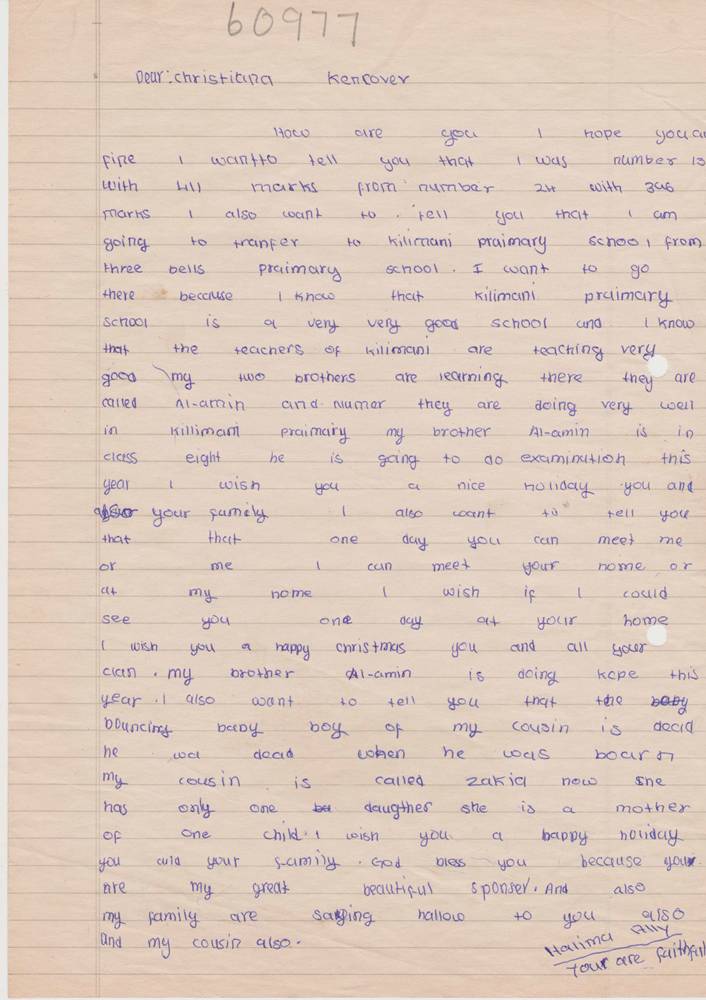 60977
Dear:christiana Kencover
How are you I hope you ar
fine I wantto tell you that I was number 13
with 411 marks from number 24 with 396
marks I also want to tell you that I am
going to tranfer to kilimani praimary school from
three bells praimary school. I want to go
there because I know that kilimani praimary
school is a very very good school and I know
that the teachers of kilimani are teaching very
good my two brothers are learning there they are
called Al-amin and Numar they are doing very well
in killimani praimary my brother Al-amin is in
class eight he is going to do examination this
year I wish you a nice holiday you and
your family I also want to tell you
that that one day you can meet me
or me I can meet your home or
at my home I wish if I could
see you one day at your home
I wish you a happy christmas you and all your
clan. my brother Al-amin is doing kcpe this
year. I also want to tell you that the baby
bouncing baby boy of my cousin is dead
he wa dead when he was boarn
my cousin is called zakia now she
has only one daugther she is a mother
of one child. I wish you a happy holiday
you and your family. God bless you because your
are my great beautiful sponser. And also
my family are saying hallow to you also
and my cousin also.
Halima Ally
Your are faithfull